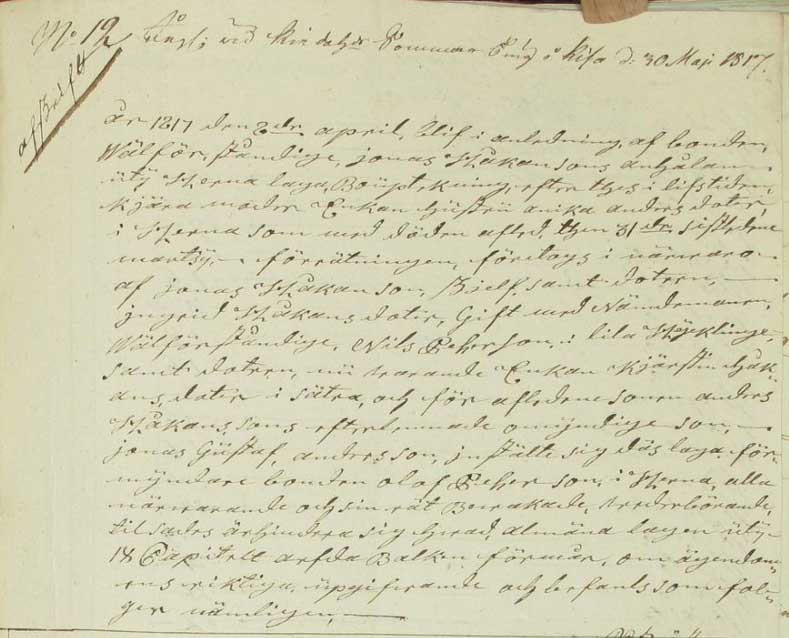 No 12 Ingf: vid Kinda Hds Sommar Ting i Kisa d: 30 Maji 1817.
afskrift
år 1817 den 2dra april, blif i anledning, af bonden,
Wälförståndige, jonas Håkansons anhålan
uty Herna laga Bouptekning, efter thes i lifstiden,
Kjära moder Enkan Gustri anika anders doter,
i Herna som med döden afled, then 31 dr: sistledne
martsy, förrätningen, företogs i närwaro
af jonas Håkanson, Sielf, samt dotren,
jngrid Håkans doter, Gift med Nämndemanen,
Wälförståndige, Nils Pehrson, i lila Höcklinge,
samt dotren, nu warande Enkan Kjärstin Håk-
ans, doter i sätra, och för afledene sonen anders
Håkanssons efterlemnade omyndige son,
jonas Gustaf, andersson, jnstälte sig däs laga för-
myndare bonden olof Pehrson, i Herna, alla
närwarande och sin rät Bewakade, wederbörande,
til sades ärhindra sig hwad, almäna lagen uty
18 Capitelt ärfda Balken förmår, om ägendom-
ens riktiga, upgifwande och befants som föl-
ger nämligen,